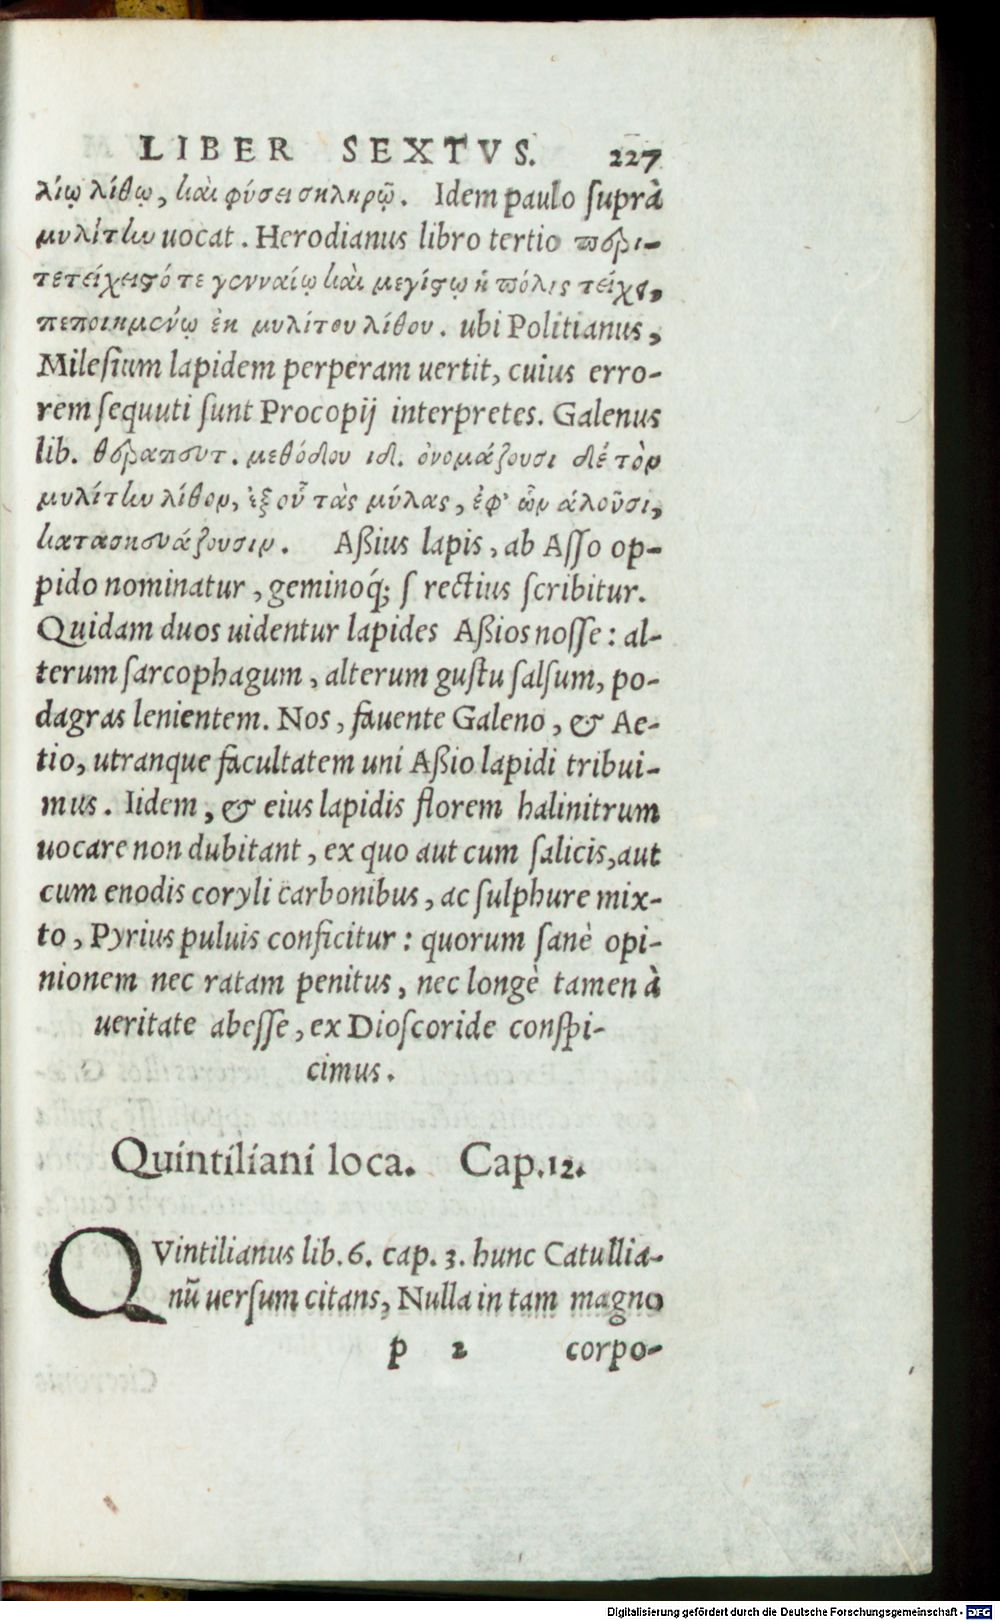 LIBER SEXTVS. 227
λίῳ λίθῳ, καὶ φύσει σκληρῷ. Idem paulo ſuprà
μυλίτην uocat. Herodianus libro tertio περι-
τετείχιϛό τε γενναίῳ καὶ μεγίϛῳ ἡ πόλις τείχει,
πεποιημένῳ ἐκ μυλίτου λίθου. ubi Politianus,
Mileſium lapidem perperam uertit, cuius erro-
rem ſequuti ſunt Procopij interpretes. Galenus
lib. θεραπευτ. μεθόδου ιδ. ὀνομάζουσι δέ τὸν
μυλίτην λίθον, ἐξ οὗ τὰς μύλας, ἐφ' ὧν ἀλοῦσι,
κατασκευάζουσιν. Aßius lapis, ab Aſſo op-
pido nominatur, geminoq́; ſ rectius ſcribitur.
Quidam duos uidentur lapides Aßios noſſe: al-
terum ſarcophagum, alterum guſtu ſalſum, po-
dagras lenientem. Nos, fauente Galeno, & Ae-
tio, utranque facultatem uni Aßio lapidi tribui-
mus. Iidem, & eius lapidis florem halinitrum
uocare non dubitant, ex quo aut cum ſalicis, aut
cum enodis coryli carbonibus, ac ſulphure mix-
to, Pyrius puluis conficitur: quorum ſanè opi-
nionem nec ratam penitus, nec longè tamen à
ueritate abeſſe, ex Dioſcoride conſpi-
cimus.
Quintiliani loca. Cap.12.
QVintilianus lib. 6. cap. 3. hunc Catullia-
nũ uerſum citans, Nulla in tam magno
p 2 corpo-
Digitalisierung gefördert durch die Deutsche Forschungsgemeinschaft - DFG